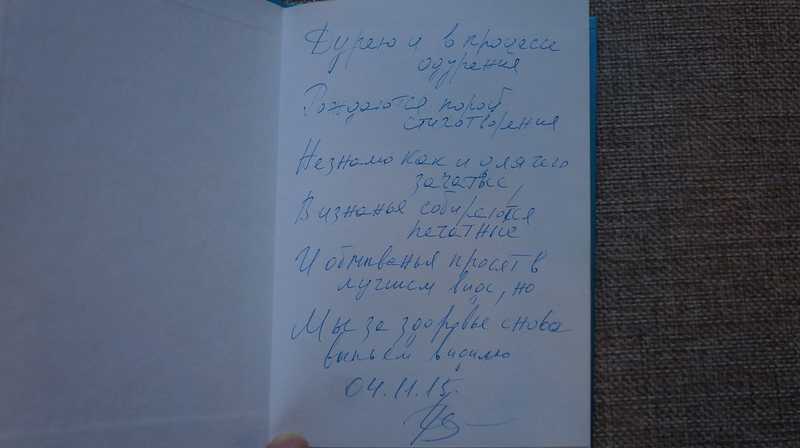 Дурею и в процессе
одурения
Рождаются порой
стихотворения
Незнамо как и для чего
зачатые,
В изнанья собираются
печатные
И обмыванья просят в
лучшем виде, но
Мы за здоровье снова
выпьем
04.11.15.